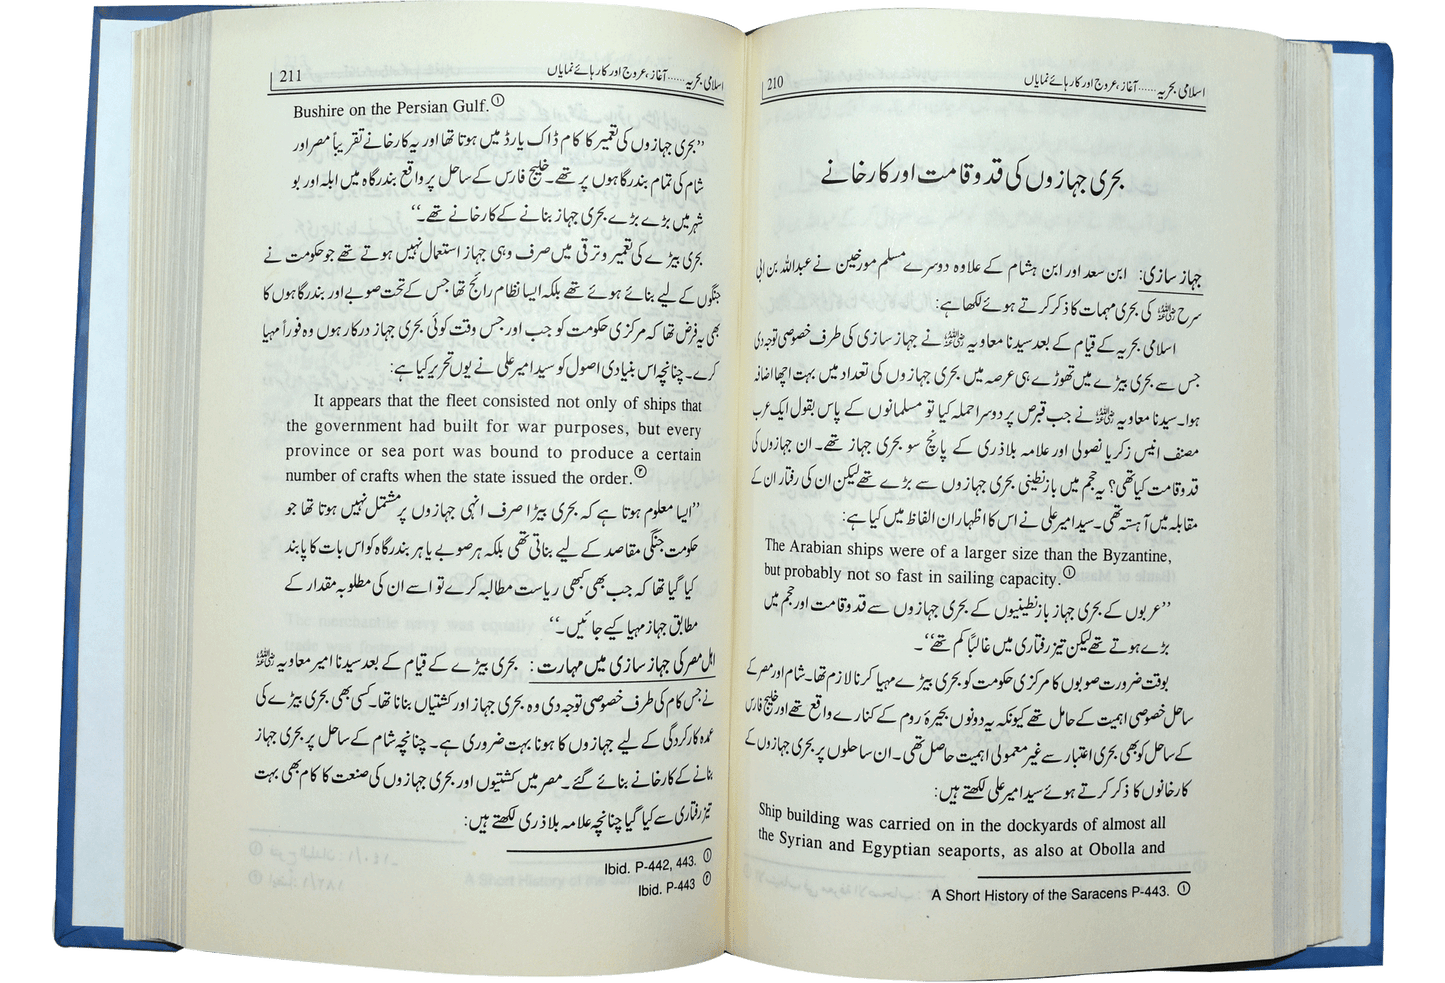 اسلامی بحریہ...... آغاز، عروج اور کارہائے نمایاں 210
بحری جہازوں کی قد و قامت اور کارخانے
جہاز سازی: ابن سعد اور ابن ہشام کے علاوہ دوسرے مسلم مورخین نے عبداللہ بن ابی
سرح رضی اللہ عنہ کی بحری مہمات کا ذکر کرتے ہوئے لکھا ہے:
اسلامی بحریہ کے قیام کے بعد سیدنا معاویہ رضی اللہ عنہ نے جہاز سازی کی طرف خصوصی توجہ دی
جس سے بحری بیڑے میں تھوڑے ہی عرصہ میں بحری جہازوں کی تعداد میں بہت اچھا اضافہ
ہوا۔ سیدنا معاویہ رضی اللہ عنہ نے جب قبرص پر دوسرا حملہ کیا تو مسلمانوں کے پاس بقول ایک عرب
مصنف انیس زکریا نصولی اور علامہ بلاذری کے پانچ سو بحری جہاز تھے۔ ان جہازوں کی
قد و قامت کیا تھی؟ یہ حجم میں بازنطینی بحری جہازوں سے بڑے تھے لیکن ان کی رفتار ان کے
مقابلہ میں آہستہ تھی۔ سید امیر علی نے اس کا اظہار ان الفاظ میں کیا ہے:
The Arabian ships were of a larger size than the Byzantine,
but probably not so fast in sailing capacity.①
”عربوں کے بحری جہاز بازنطینیوں کے بحری جہازوں سے قد و قامت اور حجم میں
بڑے ہوتے تھے لیکن تیز رفتاری میں غالباً کم تھے“۔
بوقت ضرورت صوبوں کا مرکزی حکومت کو بحری بیڑے مہیا کرنا لازم تھا۔ شام اور مصر کے
ساحل خصوصی اہمیت کے حامل تھے کیونکہ یہ دونوں بحیرۂ روم کے کنارے واقع تھے اور خلیج فارس
کے ساحل کو بھی بحری اعتبار سے غیر معمولی اہمیت حاصل تھی۔ ان ساحلوں پر بحری جہازوں کے
کارخانوں کا ذکر کرتے ہوئے سید امیر علی لکھتے ہیں:
Ship building was carried on in the dockyards of almost all
the Syrian and Egyptian seaports, as also at Obolla and
A Short History of the Saracens P-443. ①
اسلامی بحریہ...... آغاز، عروج اور کارہائے نمایاں 211
Bushire on the Persian Gulf.①
”بحری جہازوں کی تعمیر کا کام ڈاک یارڈ میں ہوتا تھا اور یہ کارخانے تقریباً مصر اور
شام کی تمام بندرگاہوں پر تھے۔ خلیج فارس کے ساحل پر واقع بندرگاہ میں ابلہ اور بو
شہر میں بڑے بڑے بحری جہاز بنانے کے کارخانے تھے۔“
بحری بیڑے کی تعمیر و ترقی میں صرف وہی جہاز استعمال نہیں ہوتے تھے جو حکومت نے
جنگوں کے لیے بنائے ہوئے تھے بلکہ ایسا نظام رائج تھا جس کے تحت صوبے اور بندرگاہوں کا
بھی یہ فرض تھا کہ مرکزی حکومت کو جب اور جس وقت کوئی بحری جہاز درکار ہوں وہ فوراً مہیا
کرے۔ چنانچہ اس بنیادی اصول کو سید امیر علی نے یوں تحریر کیا ہے:
It appears that the fleet consisted not only of ships that
the government had built for war purposes, but every
province or sea port was bound to produce a certain
number of crafts when the state issued the order.②
”ایسا معلوم ہوتا ہے کہ بحری بیڑا صرف انہی جہازوں پر مشتمل نہیں ہوتا تھا جو
حکومت جنگی مقاصد کے لیے بناتی تھی بلکہ ہر صوبے یا ہر بندرگاہ کو اس بات کا پابند
کیا گیا تھا کہ جب بھی کبھی ریاست مطالبہ کرے تو اسے ان کی مطلوبہ مقدار کے
مطابق جہاز مہیا کیے جائیں۔“
اہل مصر کی جہاز سازی میں مہارت: بحری بیڑے کے قیام کے بعد سیدنا امیر معاویہ رضی اللہ عنہ
نے جس کام کی طرف خصوصی توجہ دی وہ بحری جہاز اور کشتیاں بنانا تھا۔ کسی بھی بحری بیڑے کی
عمدہ کارکردگی کے لیے جہازوں کا ہونا بہت ضروری ہے۔ چنانچہ شام کے ساحل پر بحری جہاز
بنانے کے کارخانے بنائے گئے۔ مصر میں کشتیوں اور بحری جہازوں کی صنعت کا کام بھی بہت
تیز رفتاری سے کیا گیا چنانچہ علامہ بلاذری لکھتے ہیں:
Ibid. P-442, 443. ①
Ibid. P-443 ②